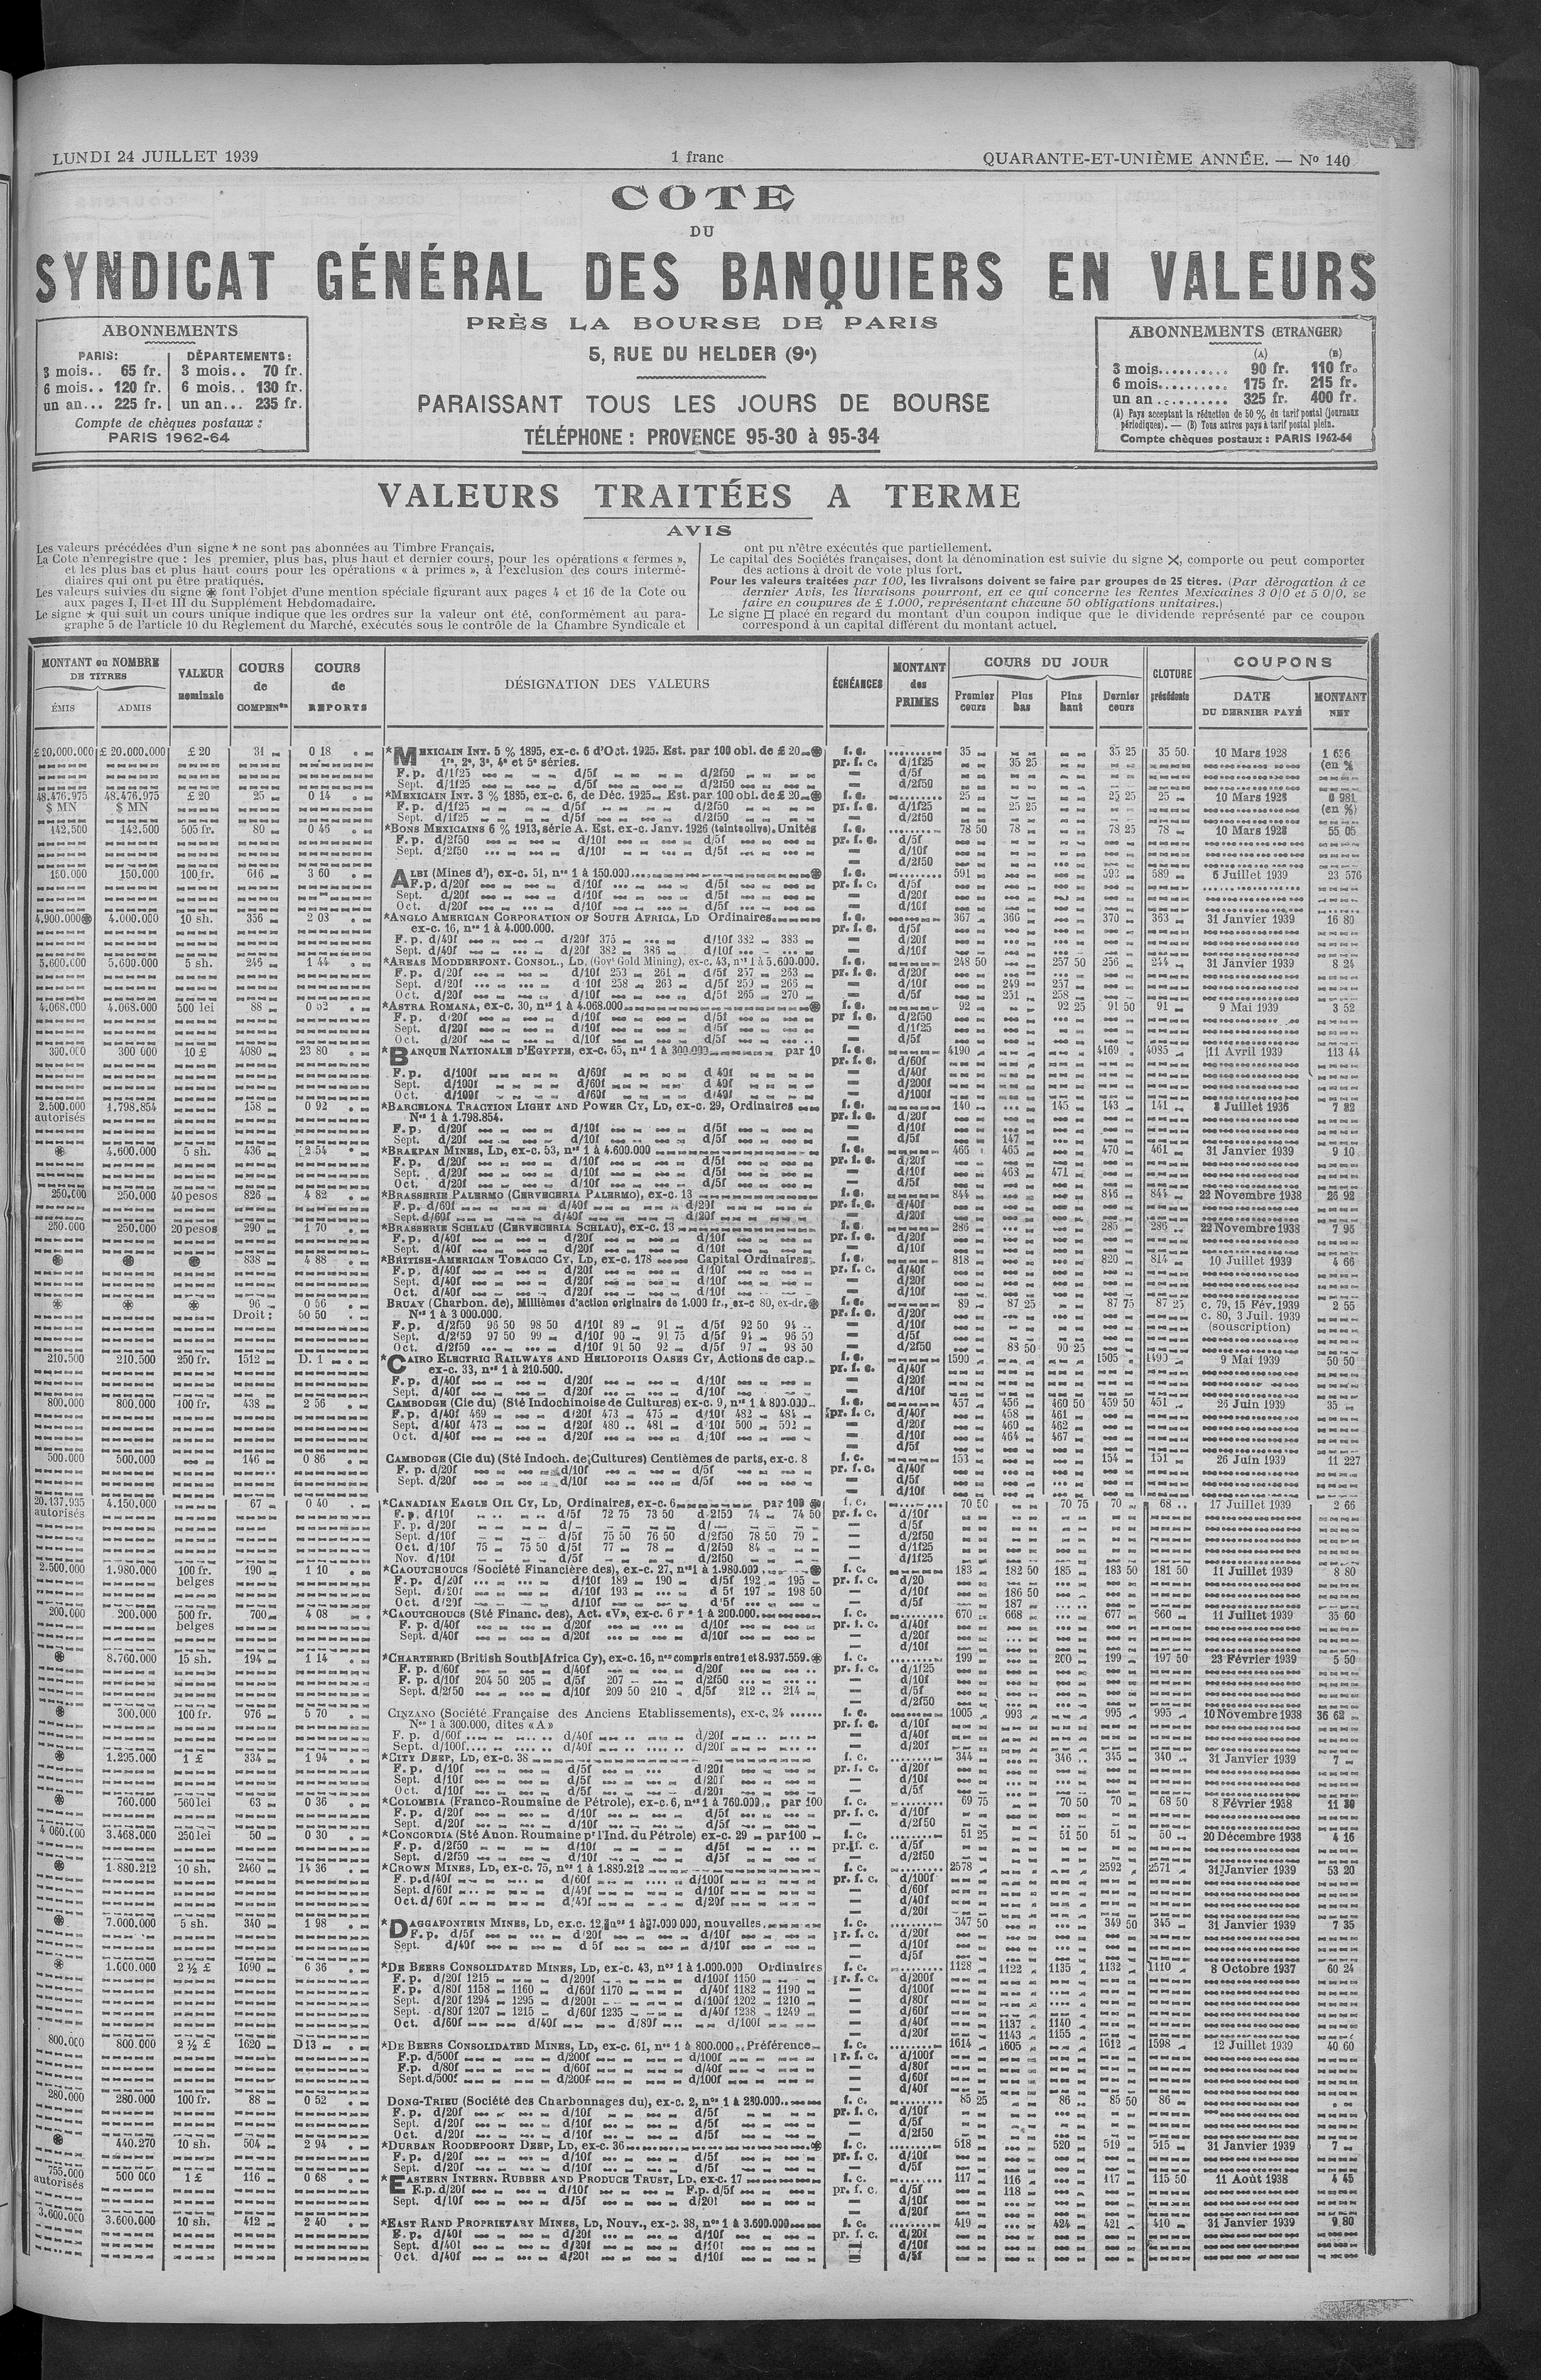 LUNDI 24 JUILLET 1939
1 franc
QUARANTE-ET-UNIÈME ANNÉE. — No 140
COTE
DU
SYNDICAT GÉNÉRAL DES BANQUIERS EN VALEURS
PRÈS LA BOURSE DE PARIS
5, RUE DU HELDER (9e)
PARAISSANT TOUS LES JOURS DE BOURSE
TÉLÉPHONE : PROVENCE 95-30 à 95-34
ABONNEMENTS
PARIS: DÉPARTEMENTS:
3 mois.. 65 fr. 3 mois.. 70 fr.
6 mois.. 120 fr. 6 mois.. 130 fr.
un an... 225 fr. un an... 235 fr.
Compte de chèques postaux :
PARIS 1962-64
ABONNEMENTS (ETRANGER)
(A) (B)
3 mois.......... 90 fr. 110 fr.
6 mois.......... 175 fr. 215 fr.
un an .......... 325 fr. 400 fr.
(A) Pays acceptant la réduction de 50 % du tarif postal (journaux
périodiques). — (B) Tous autres pays à tarif postal plein.
Compte chèques postaux : PARIS 1962-64
VALEURS TRAITÉES A TERME
AVIS
Les valeurs précédées d'un signe * ne sont pas abonnées au Timbre Français.
La Cote n'enregistre que : les premier, plus bas, plus haut et dernier cours, pour les opérations « fermes »,
et les plus bas et plus haut cours pour les opérations « à primes », à l'exclusion des cours intermé-
diaires qui ont pu être pratiqués.
Les valeurs suivies du signe ⊛ font l'objet d'une mention spéciale figurant aux pages 4 et 16 de la Cote ou
aux pages I, II et III du Supplément Hebdomadaire.
Le signe ★ qui suit un cours unique indique que les ordres sur la valeur ont été, conformément au para-
graphe 5 de l'article 10 du Règlement du Marché, exécutés sous le contrôle de la Chambre Syndicale et
ont pu n'être exécutés que partiellement.
Le capital des Sociétés françaises, dont la dénomination est suivie du signe ✕, comporte ou peut comporter
des actions à droit de vote plus fort.
Pour les valeurs traitées par 100, les livraisons doivent se faire par groupes de 25 titres. (Par dérogation à ce
dernier Avis, les livraisons pourront, en ce qui concerne les Rentes Mexicaines 3 0/0 et 5 0/0, se
faire en coupures de £ 1.000, représentant chacune 50 obligations unitaires.)
Le signe □ placé en regard du montant d'un coupon indique que le dividende représenté par ce coupon
correspond à un capital différent du montant actuel.
MONTANT ou NOMBRE DE TITRES
ÉMIS ADMIS
VALEUR nominale
COURS de COMPENon
COURS de REPORTS
DÉSIGNATION DES VALEURS
ÉCHÉANCES
MONTANT des PRIMES
COURS DU JOUR
Premier cours Plus bas Plus haut Dernier cours
CLOTURE précédente
COUPONS
DATE DU DERNIER PAYÉ MONTANT NET
£ 20.000.000 £ 20.000.000 £ 20 31 0 18 *MEXICAIN INT. 5 % 1895, ex-c. 6 d'Oct. 1925. Est. par 100 obl. de £ 20 ⊛ f. c. 35 35 25 35 50 10 Mars 1928 1 636
1re, 2e, 3e, 4e et 5e séries. pr. f. c. d/1f25 35 25 (en %
F. p. d/1f25 d/5f d/2f50 — d/5f
Sept. d/1f25 d/5f d/2f50 — d/2f50
48.476.975 48.476.975 £ 20 25 0 14 *MEXICAIN INT. 3 % 1885, ex-c. 6, de Déc. 1925 Est. par 100 obl. de £ 20 ⊛ f. c. 25 25 25 25 10 Mars 1928 0 981
$ MN $ MN F. p. d/1f25 d/5f d/2f50 pr. f. c. d/1f25 25 25 (en %)
Sept. d/1f25 d/5f d/2f50 — d/2f50
142.500 142.500 505 fr. 80 0 46 *BONS MEXICAINS 6 % 1913, série A. Est. ex-c. Janv. 1926 (teinte olive). Unités f. c. 78 50 78 78 25 78 10 Mars 1928 55 05
F. p. d/2f50 d/10f d/5f pr. f. c. d/5f
Sept. d/2f50 d/10f d/5f — d/10f
— d/2f50
150.000 150.000 100 fr. 616 3 60 ALBI (Mines d'), ex-c. 51, nos 1 à 150.000 ⊛ f. c. 591 593 589 6 Juillet 1939 23 576
F. p. d/20f d/10f d/5f pr. f. c. d/5f
Sept. d/20f d/10f d/5f — d/20f
Oct. d/20f d/10f d/5f — d/10f
4.900.000⊛ 4.000.000 10 sh. 356 2 03 *ANGLO AMERICAN CORPORATION OF SOUTH AFRICA, LD Ordinaires f. c. 367 366 370 363 31 Janvier 1939 16 80
ex-c. 16, nos 1 à 4.000.000. pr. f. c. d/5f
F. p. d/40f d/20f 375 d/10f 382 383 — d/20f
Sept. d/40f d/20f 382 386 d/10f — d/10f
5.600.000 5.600.000 5 sh. 246 1 44 *AREAS MODDERFONT. CONSOL., LD, (Govt Gold Mining), ex-c. 43, nos 1 à 5.600.000. f. c. 248 50 257 50 256 244 31 Janvier 1939 8 24
F. p. d/20f d/10f 253 261 d/5f 257 263 pr. f. c. d/20f
Sept. d/20f d/10f 258 263 d/5f 259 266 — d/10f 249 257
Oct. d/20f d/10f d/5f 265 270 — d/5f 251 258
4.068.000 4.068.000 500 lei 88 0 52 *ASTRA ROMANA, ex-c. 30, nos 1 à 4.068.000 ⊛ f. c. 92 92 25 91 50 91 9 Mai 1939 3 52
F. p. d/20f d/10f d/5f pr f. c. d/2f50
Sept. d/20f d/10f d/5f — d/1f25
Oct. d/20f d/10f d/5f — d/5f
300.000 300 000 10 £ 4080 23 80 *BANQUE NATIONALE D'EGYPTE, ex-c. 65, nos 1 à 300.000 par 10 f. c. 4190 4169 4085 11 Avril 1939 113 44
pr. f. c. d/60f
F. p. d/100f d/60f d 40f — d/40f
Sept. d/100f d/60f d 40f — d/200f
Oct. d/100f d/60f d/40f — d/100f
2.500.000 1.798.854 158 0 92 *BARCELONA TRACTION LIGHT AND POWER CY, LD, ex-c. 29, Ordinaires f. c. 140 145 143 141 8 Juillet 1936 7 82
autorisés Nos 1 à 1.798.854. pr. f. c. d/20f
F. p. d/20f d/10f d/5f — d/10f
Sept. d/20f d/10f d/5f — d/5f 147
⊛ 4.600.000 5 sh. 436 2 54 *BRAKPAN MINES, LD, ex-c. 53, nos 1 à 4.600.000 f. c. 466 465 470 461 31 Janvier 1939 9 10
F. p. d/20f d/10f d/5f pr. f. c. d/20f
Sept. d/20f d/10f d/5f — d/10f 463 471
Oct. d/20f d/10f d/5f — d/5f
250.000 250.000 40 pesos 826 4 82 *BRASSERIE PALERMO (CERVECERIA PALERMO), ex-c. 13 f. c. 844 846 844 22 Novembre 1938 26 92
F. p. d/60f d/40f d/20f pr. f. c. d/40f
Sept. d/60f d/40f d/20f — d/20f
250.000 250.000 20 pesos 290 1 70 *BRASSERIE SCHLAU (CERVECERIA SCHLAU), ex-c. 13 f. c. 286 285 286 22 Novembre 1938 7 95
F. p. d/40f d/20f d/10f pr. f. c. d/20f
Sept. d/40f d/20f d/10f — d/10f
⊛ ⊛ ⊛ 838 4 88 *BRITISH-AMERICAN TOBACCO CY, LD, ex-c. 178 Capital Ordinaires f. c. 818 820 814 10 Juillet 1939 4 66
F. p. d/40f d/20f d/10f pr. f. c. d/40f
Sept. d/40f d/20f d/10f — d/20f
Oct. d/40f d/20f d/10f — d/10f
⊛ ⊛ ⊛ 96 0 56 BRUAY (Charbon. de), Millièmes d'action originaire de 1.000 fr., ex-c 80, ex-dr. ⊛ f. c. 89 87 25 87 75 87 25 c. 79, 15 Fév. 1939 2 55
Droit : 50 50 Nos 1 à 3 000.000. pr. f. c. d/20f c. 80, 3 Juil. 1939
F. p. d/2f50 96 50 98 50 d/10f 89 91 d/5f 92 50 94 — d/10f (souscription)
Sept. d/2f50 97 50 99 d/10f 90 91 75 d/5f 94 96 50 — d/5f
Oct. d/2f50 d/10f 91 50 92 d/5f 97 98 50 — d/2f50 88 50 90 25
210.500 210.500 250 fr. 1512 D. 1 *CAIRO ELECTRIC RAILWAYS AND HELIOPOLIS OASES CY, Actions de cap. f. c. 1500 1505 1490 9 Mai 1939 50 50
ex-c. 33, nos 1 à 210.500. pr. f. c. d/40f
F. p. d/40f d/20f d/10f — d/20f
Sept. d/40f d/20f d/10f — d/10f
800.000 800.000 100 fr. 438 2 56 CAMBODGE (Cie du) (Sté Indochinoise de Cultures) ex-c. 9, nos 1 à 800.000 f. c. 457 456 460 50 459 50 451 26 Juin 1939 35
F. p. d/40f 469 d/20f 473 475 d/10f 482 484 pr. f. c. d/40f 458 461
Sept. d/40f 473 d/20f 480 481 d/10f 500 502 — d/20f 460 462
Oct. d/40f d/20f d/10f — d/10f 464 467
— d/5f
500.000 500.000 146 0 86 CAMBODGE (Cie du) (Sté Indoch. de Cultures) Centièmes de parts, ex-c. 8 f. c. 153 154 151 26 Juin 1939 11 227
F. p. d/20f d/10f d/5f pr. f. c. d/40f
Sept. d/20f d/10f d/5f — d/5f
— d/10f
20.137.935 4.150.000 67 0 40 *CANADIAN EAGLE OIL CY, LD, Ordinaires, ex-c. 6 par 100 ⊛ f. c. 70 50 70 75 70 68 17 Juillet 1939 2 66
autorisés F. p. d/10f d/5f 72 75 73 50 d/2f50 74 74 50 pr. f. c. d/10f
F. p. d/20f d/— d/— — d/5f
Sept. d/10f d/5f 75 50 76 50 d/2f50 78 50 79 — d/2f50
Oct. d/10f 75 75 50 d/5f 77 78 d/2f50 84 — d/1f25
Nov. d/10f d/5f d/2f50 — d/1f25
2.500.000 1.980.000 100 fr. 190 1 10 *CAOUTCHOUCS (Société Financière des), ex-c. 27, nos 1 à 1.980.000 ⊛ f. c. 183 182 50 185 183 50 181 50 11 Juillet 1939 8 80
belges F. p. d/20f d/10f 189 190 d/5f 192 195 pr. f. c. d/20
Sept. d/20f d/10f 193 d 5f 197 198 50 — d/10f 186 50
Oct. d/20f d/10f d/5f — d/5f 187
200.000 200.000 500 fr. 700 4 08 *CAOUTCHOUCS (Sté Financ. des), Act. «V», ex-c. 6 1 à 200.000 f. c. 670 668 677 660 11 Juillet 1939 35 60
belges F. p. d/40f d/20f d/10f pr. f. c. d/40f
Sept. d/40f d/20f d/10f — d/20f
— d/10f
⊛ 8.760.000 15 sh. 194 1 14 *CHARTERED (British South Africa Cy), ex-c. 16, nos compris entre 1 et 8.937.559. ⊛ f. c. 199 200 199 197 50 23 Février 1939 5 50
F. p. d/60f d/40f d/20f pr. f. c. d/1f25
F. p. d/10f 204 50 205 d/5f 207 d/2f50 — d/10f
Sept. d/2f50 d/10f 209 50 210 d/5f 212 214 — d/5f
— d/2f50
⊛ 300.000 100 fr. 976 5 70 CINZANO (Société Française des Anciens Etablissements), ex-c. 24 f. c. 1005 993 995 995 10 Novembre 1938 36 62
Nos 1 à 300.000, dites «A» pr. f. c. d/10f
F. p. d/60f d/40f d/20f — d/40f
Sept. d/100f d/40f d/20f — d/20f
⊛ 1.295.000 1 £ 334 1 94 *CITY DEEP, LD, ex-c. 38 f. c. 344 346 345 340 31 Janvier 1939 7
F. p. d/10f d/5f d/20f pr. f. c. d/20f
Sept. d/10f d/5f d/20f — d/10f
Oct. d/10f d/5f d/20f — d/5f
⊛ 760.000 500 lei 63 0 36 *COLOMBIA (Franco-Roumaine de Pétrole), ex-c. 6, nos 1 à 760.000 par 100 f. c. 69 75 70 50 70 68 50 8 Février 1938 11 30
F. p. d/20f d/10f d/5f pr. f. c. d/10f
Sept. d/20f d/10f d/5f — d/2f50
4 060.000 3.468.000 250 lei 50 0 30 *CONCORDIA (Sté Anon. Roumaine pr l'Ind. du Pétrole) ex-c. 29 par 100 f. c. 51 25 51 50 51 50 20 Décembre 1938 4 16
F. p. d/2f50 d/10f d/5f pr. f. c. d/5f
Sept. d/2f50 d/10f d/5f — d/2f50
⊛ 1.880.212 10 sh. 2460 14 36 *CROWN MINES, LD, ex-c. 75, nos 1 à 1.880.212 f. c. 2578 2592 2571 31 Janvier 1939 53 20
F. p. d/40f d/60f d/100f pr. f. c. d/100f
Sept. d/60f d/40f d/10f — d/60f
Oct. d/60f d/40f d/20f — d/40f
— d/20f
⊛ 7.000.000 5 sh. 340 1 98 *DAGGAFONTEIN MINES, LD, ex.c. 12, nos 1 à 7.000 000, nouvelles f. c. 347 50 349 50 345 31 Janvier 1939 7 35
F. p. d/5f d/20f d/10f pr. f. c. d/20f
Sept. d/40f d 5f d/10f — d/10f
— d/5f
⊛ 1.000.000 2 ½ £ 1090 6 36 *DE BEERS CONSOLIDATED MINES, LD, ex-c. 43, nos 1 à 1.000.000 Ordinaires f. c. 1128 1122 1135 1132 1110 8 Octobre 1937 60 24
F. p. d/20f 1215 d/200f d/100f 1150 pr. f. c. d/200f
F. p. d/80f 1158 1160 d/60f 1170 d/40f 1182 1190 — d/100f
Sept. d/20f 1294 1295 d/200f d/100f 1202 1210 — d/80f
Sept. d/80f 1207 1215 d/60f 1235 d/40f 1238 1249 — d/60f
Oct. d/60f d/40f d/80f d/100f — d/40f 1137 1140
— d/20f 1143 1155
800.000 800.000 2 ½ £ 1620 D 13 *DE BEERS CONSOLIDATED MINES, LD, ex-c. 61, nos 1 à 800.000 Préférence f. c. 1614 1605 1612 1598 12 Juillet 1939 40 60
F.p. d/500f d/200f d/100f pr. f. c. d/100f
F.p. d/80f d/60f d/40f — d/80f
Sept. d/500f d/200f d/100f — d/60f
— d/40f
280.000 280.000 100 fr. 88 0 52 DONG-TRIEU (Société des Charbonnages du), ex-c. 2, nos 1 à 280.000 f. c. 85 25 86 85 50 86
F. p. d/20f d/10f d/5f pr. f. c. d/10f
Sept. d/20f d/10f d/5f — d/5f
Oct. d/20f d/10f d/5f — d/2f50
⊛ 440.270 10 sh. 504 2 94 *DURBAN ROODEPOORT DEEP, LD, ex-c. 36 ⊛ f. c. 518 520 519 515 31 Janvier 1939 7
F. p. d/20f d/10f d/5f pr. f. c. d/10f
Sept. d/20f d/10f d/5f — d/5f
755.000 500 000 1 £ 116 0 68 *EASTERN INTERN. RUBBER AND PRODUCE TRUST, LD, ex-c. 17 f. c. 117 116 117 115 50 11 Août 1938 4 45
autorisés F.p. d/20f d/10f F.p. d/5f pr. f. c. d/5f 118
Sept. d/10f d/5f d/20f — d/10f
— d/20f
3.600.000 3.600.600 10 sh. 412 2 40 *EAST RAND PROPRIETARY MINES, LD, Nouv., ex-c. 38, nos 1 à 3.600.000 f. c. 419 424 421 410 31 Janvier 1939 9 80
F. p. d/40f d/20f d/10f pr. f. c. d/20f
Sept. d/40f d/20f d/10f — d/10f
Oct. d/40f d/20f d/10f — d/5f